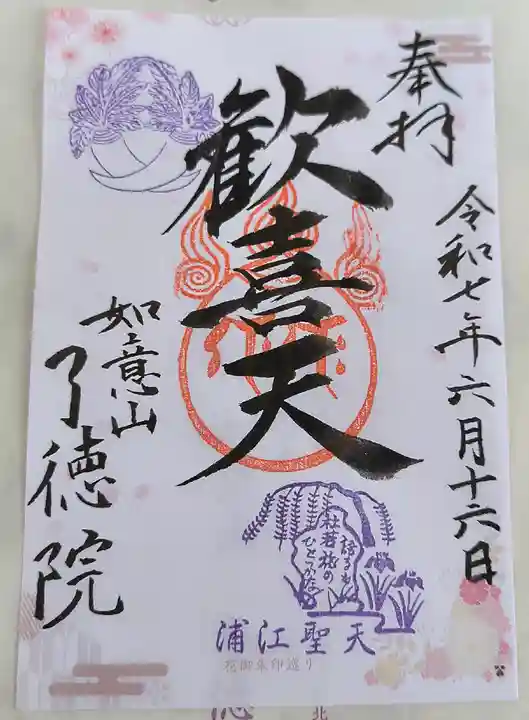 奉拝
令和七年六月十六日
歓喜天
如意山
了徳院
語るも
杜若旅の
ひとつかな
浦江聖天
花御朱印巡り
北